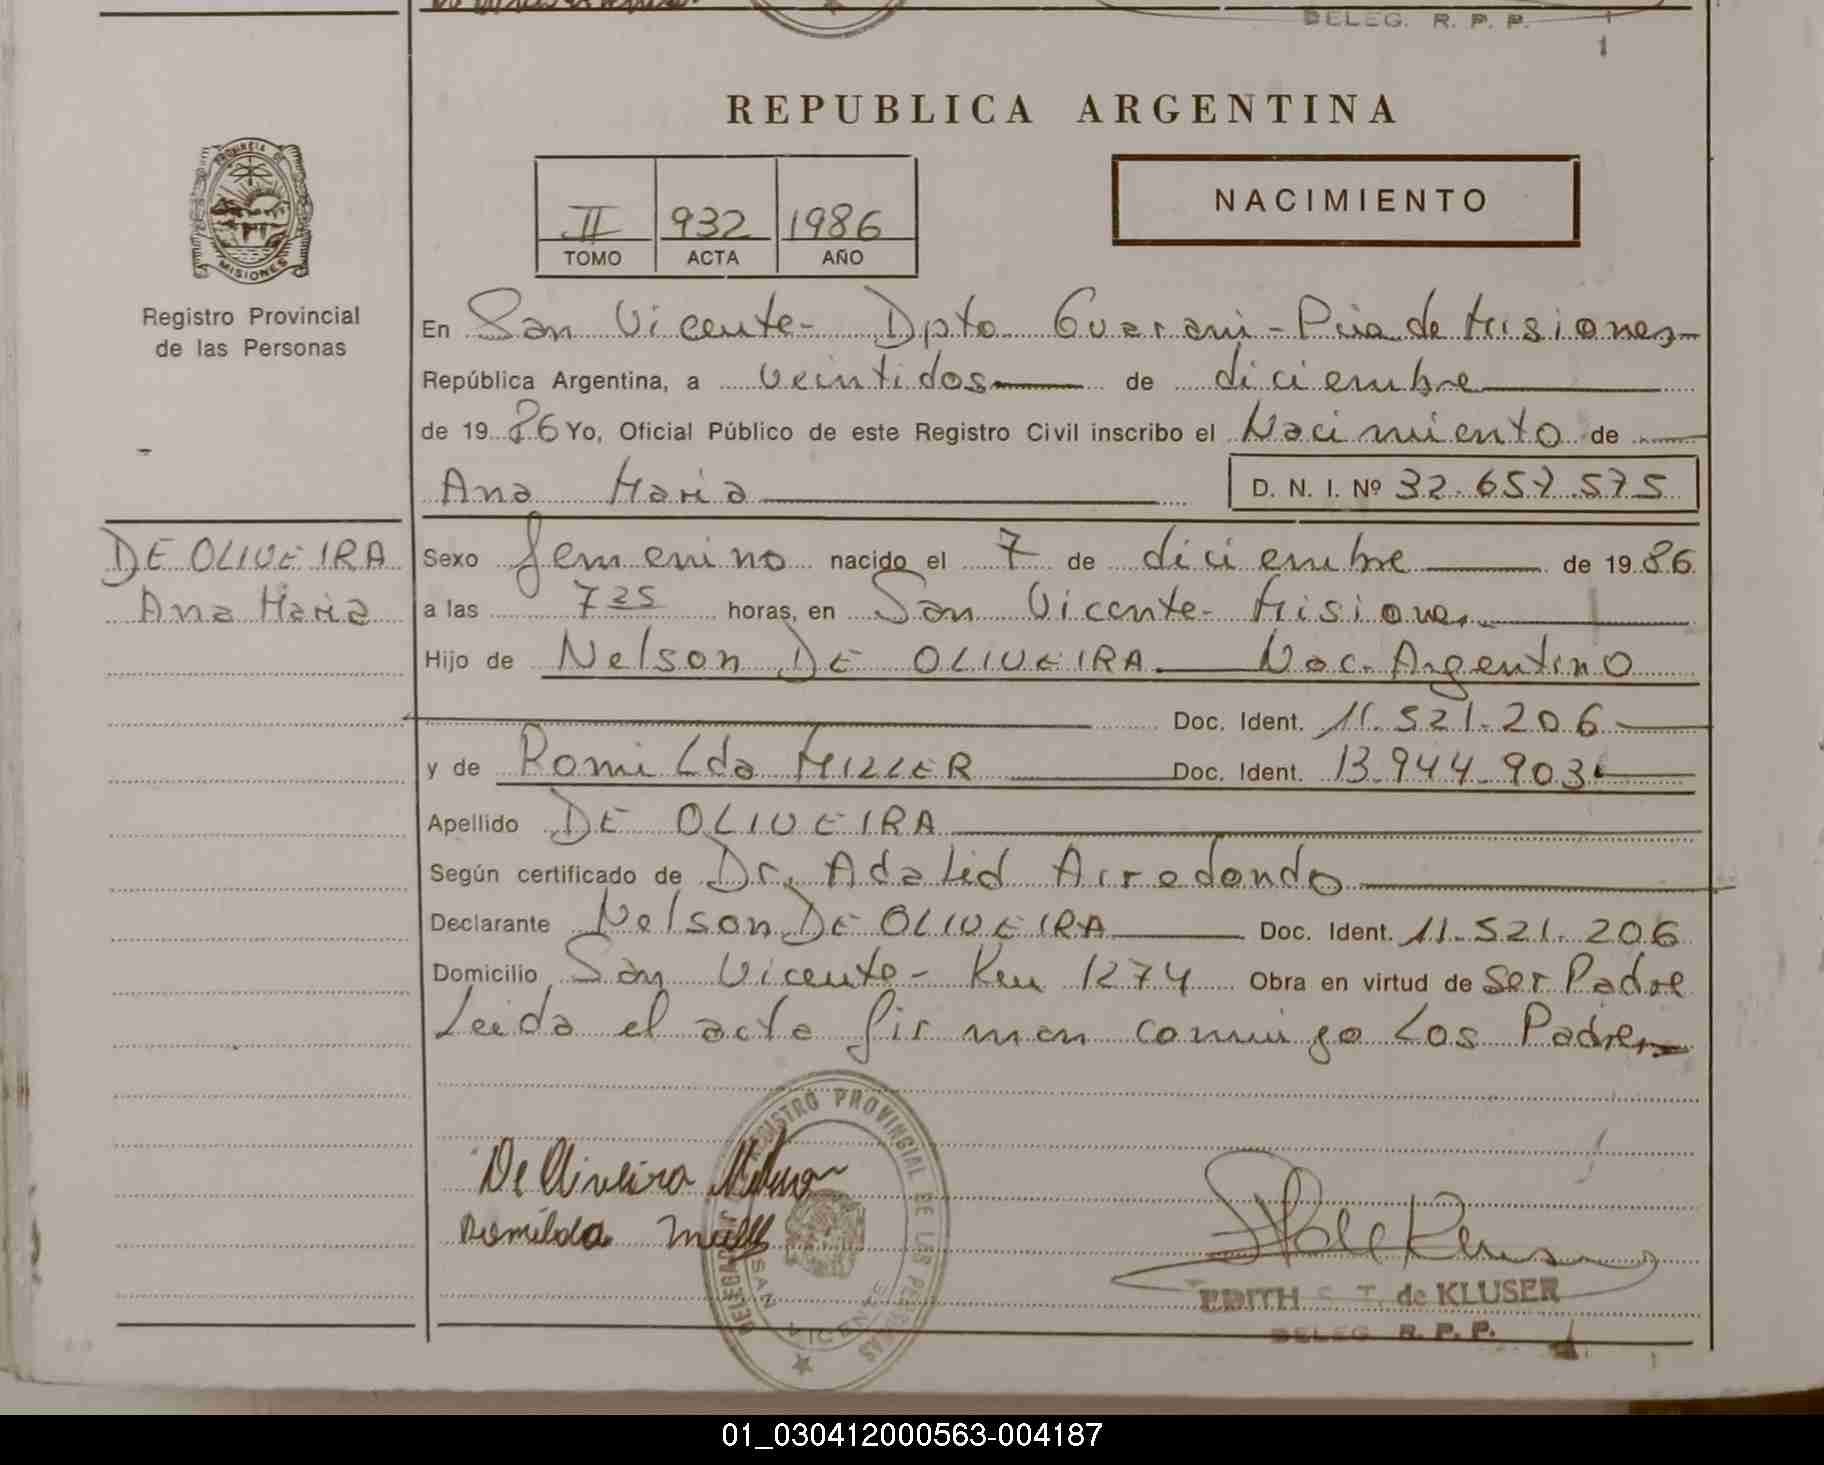 DELEG. R. P. P.
REPUBLICA ARGENTINA
PROVINCIA DE
MISIONES
Registro Provincial
de las Personas
II 932 1986
TOMO ACTA AÑO
NACIMIENTO
En San Vicente- Dpto Guarani - Pcia de Misiones
República Argentina, a veintidos de diciembre
de 1986 Yo, Oficial Público de este Registro Civil inscribo el Nacimiento de
Ana Maria D. N. I. Nº 32.657.575
DE OLIVEIRA
Ana Maria
Sexo femenino nacido el 7 de diciembre de 1986
a las 7 25 horas, en San Vicente- Misiones
Hijo de Nelson DE OLIVEIRA Nac. Argentino
Doc. Ident. 11.521.206
y de Romilda MILLER Doc. Ident. 13.944.903
Apellido DE OLIVEIRA
Según certificado de Dr. Adalid Arredondo
Declarante Nelson DE OLIVEIRA Doc. Ident. 11.521.206
Domicilio San Vicente- Km 1274 Obra en virtud de ser Padre
Leida el acta firman conmigo Los Padres
REGISTRO PROVINCIAL DE LAS PERSONAS
SAN VICENTE
De Oliveira Nelson
Romilda
EDITH S. T. de KLUSER
DELEG. R. P. P.
01_030412000563-004187